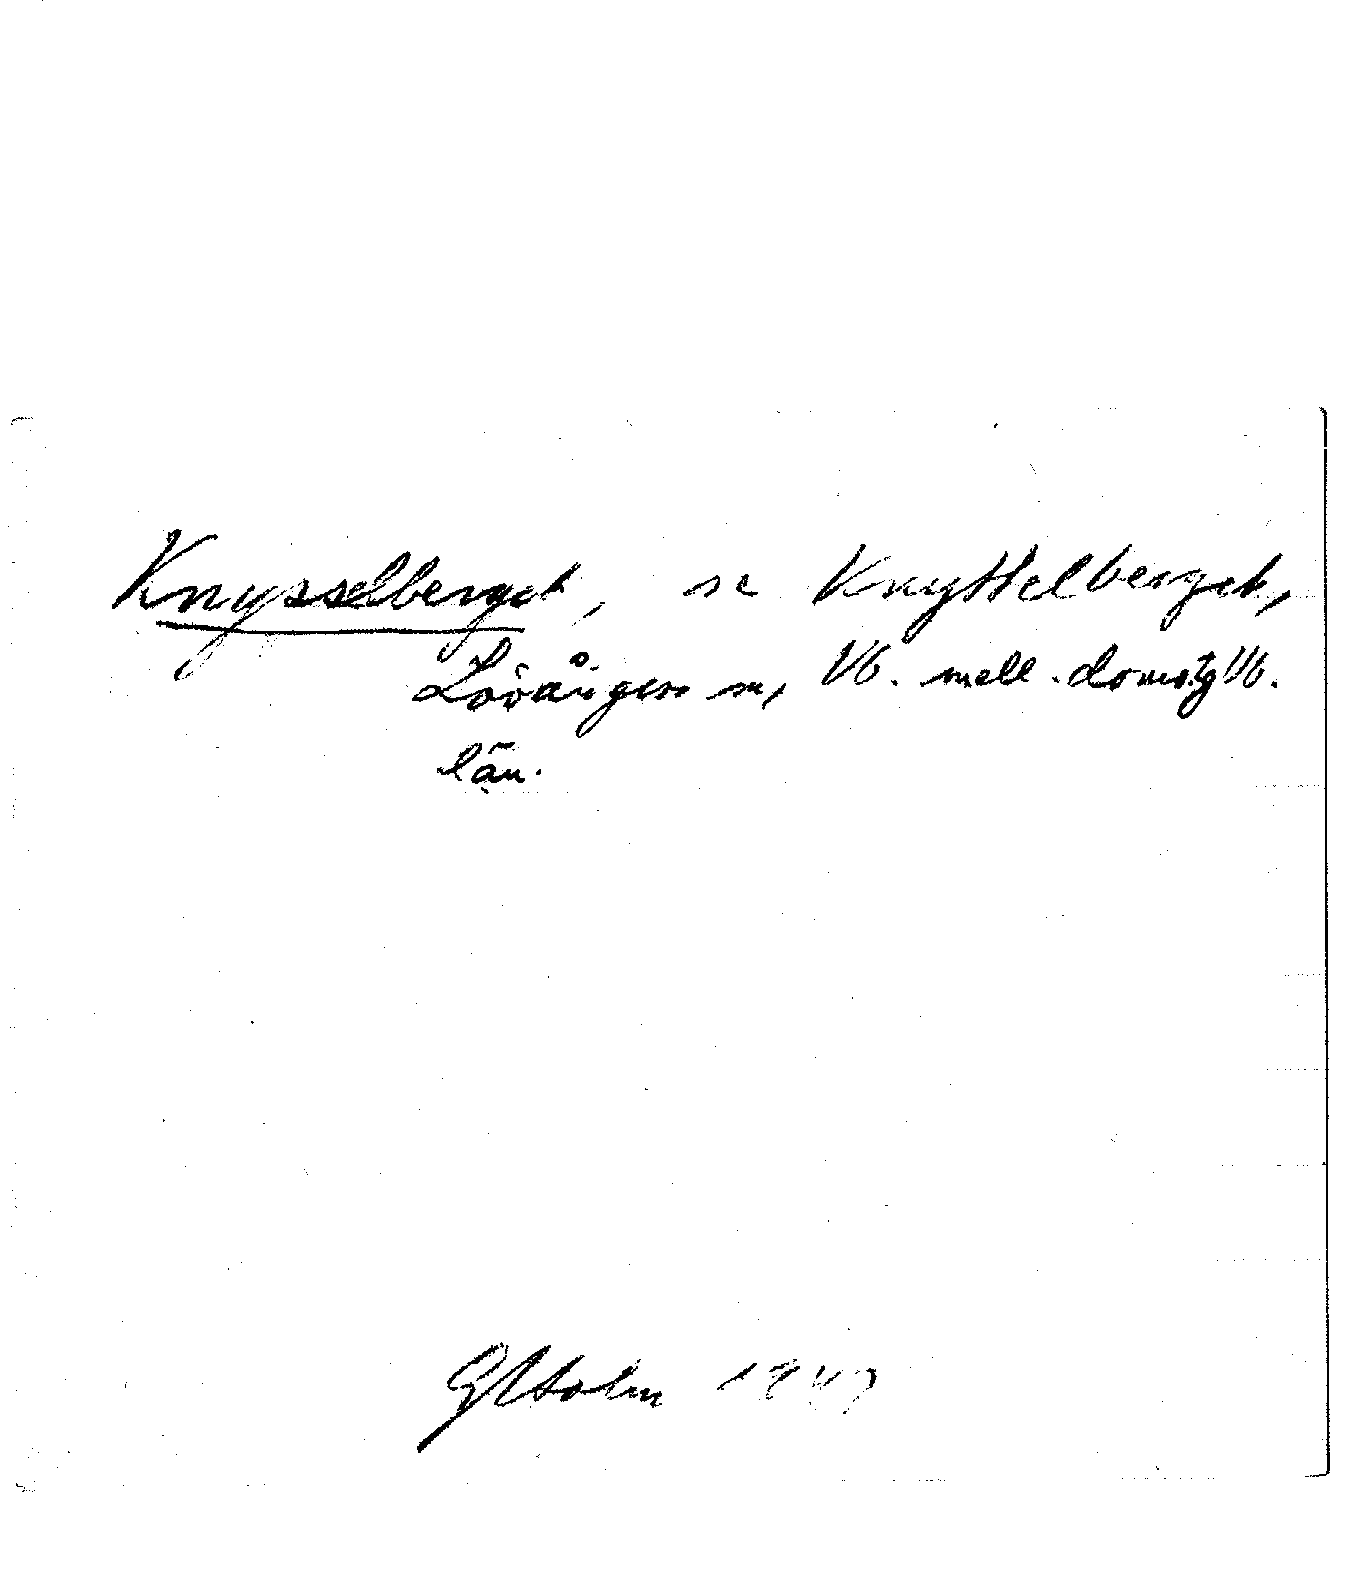 Knysselberget, se Knyttelberget,
Lövångers sn, Vb. mell. domsg Vb.
län.
GHolm 1947